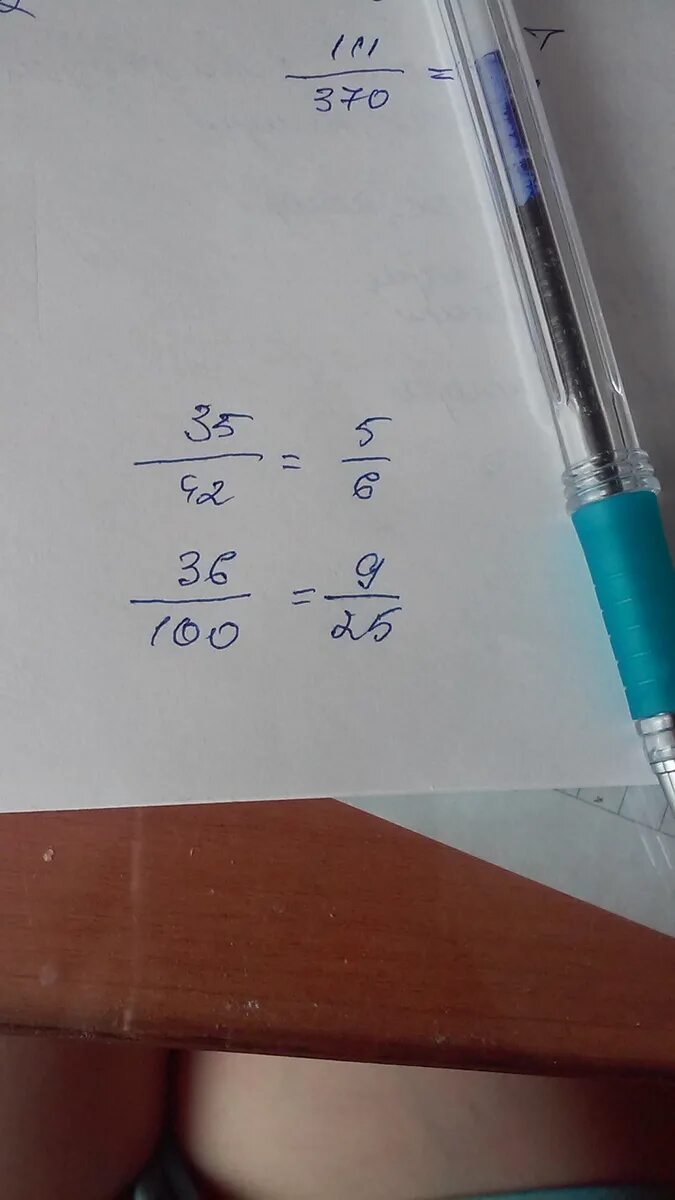 111/370 =
35/42 = 5/6
36/100 = 9/25